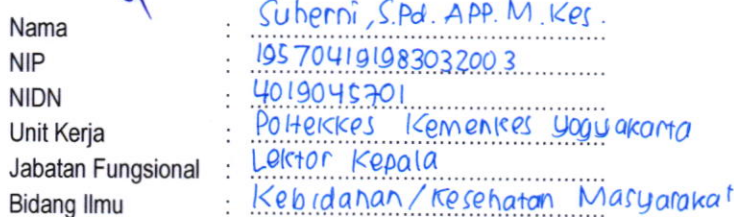 Nama : Suherni, S.Pd. APP. M. Kes.
NIP : 195704191983032003
NIDN : 4019045701
Unit Kerja : Poltekkes Kemenkes Yogyakarta
Jabatan Fungsional : Lektor Kepala
Bidang Ilmu : Kebidanan / Kesehatan Masyarakat